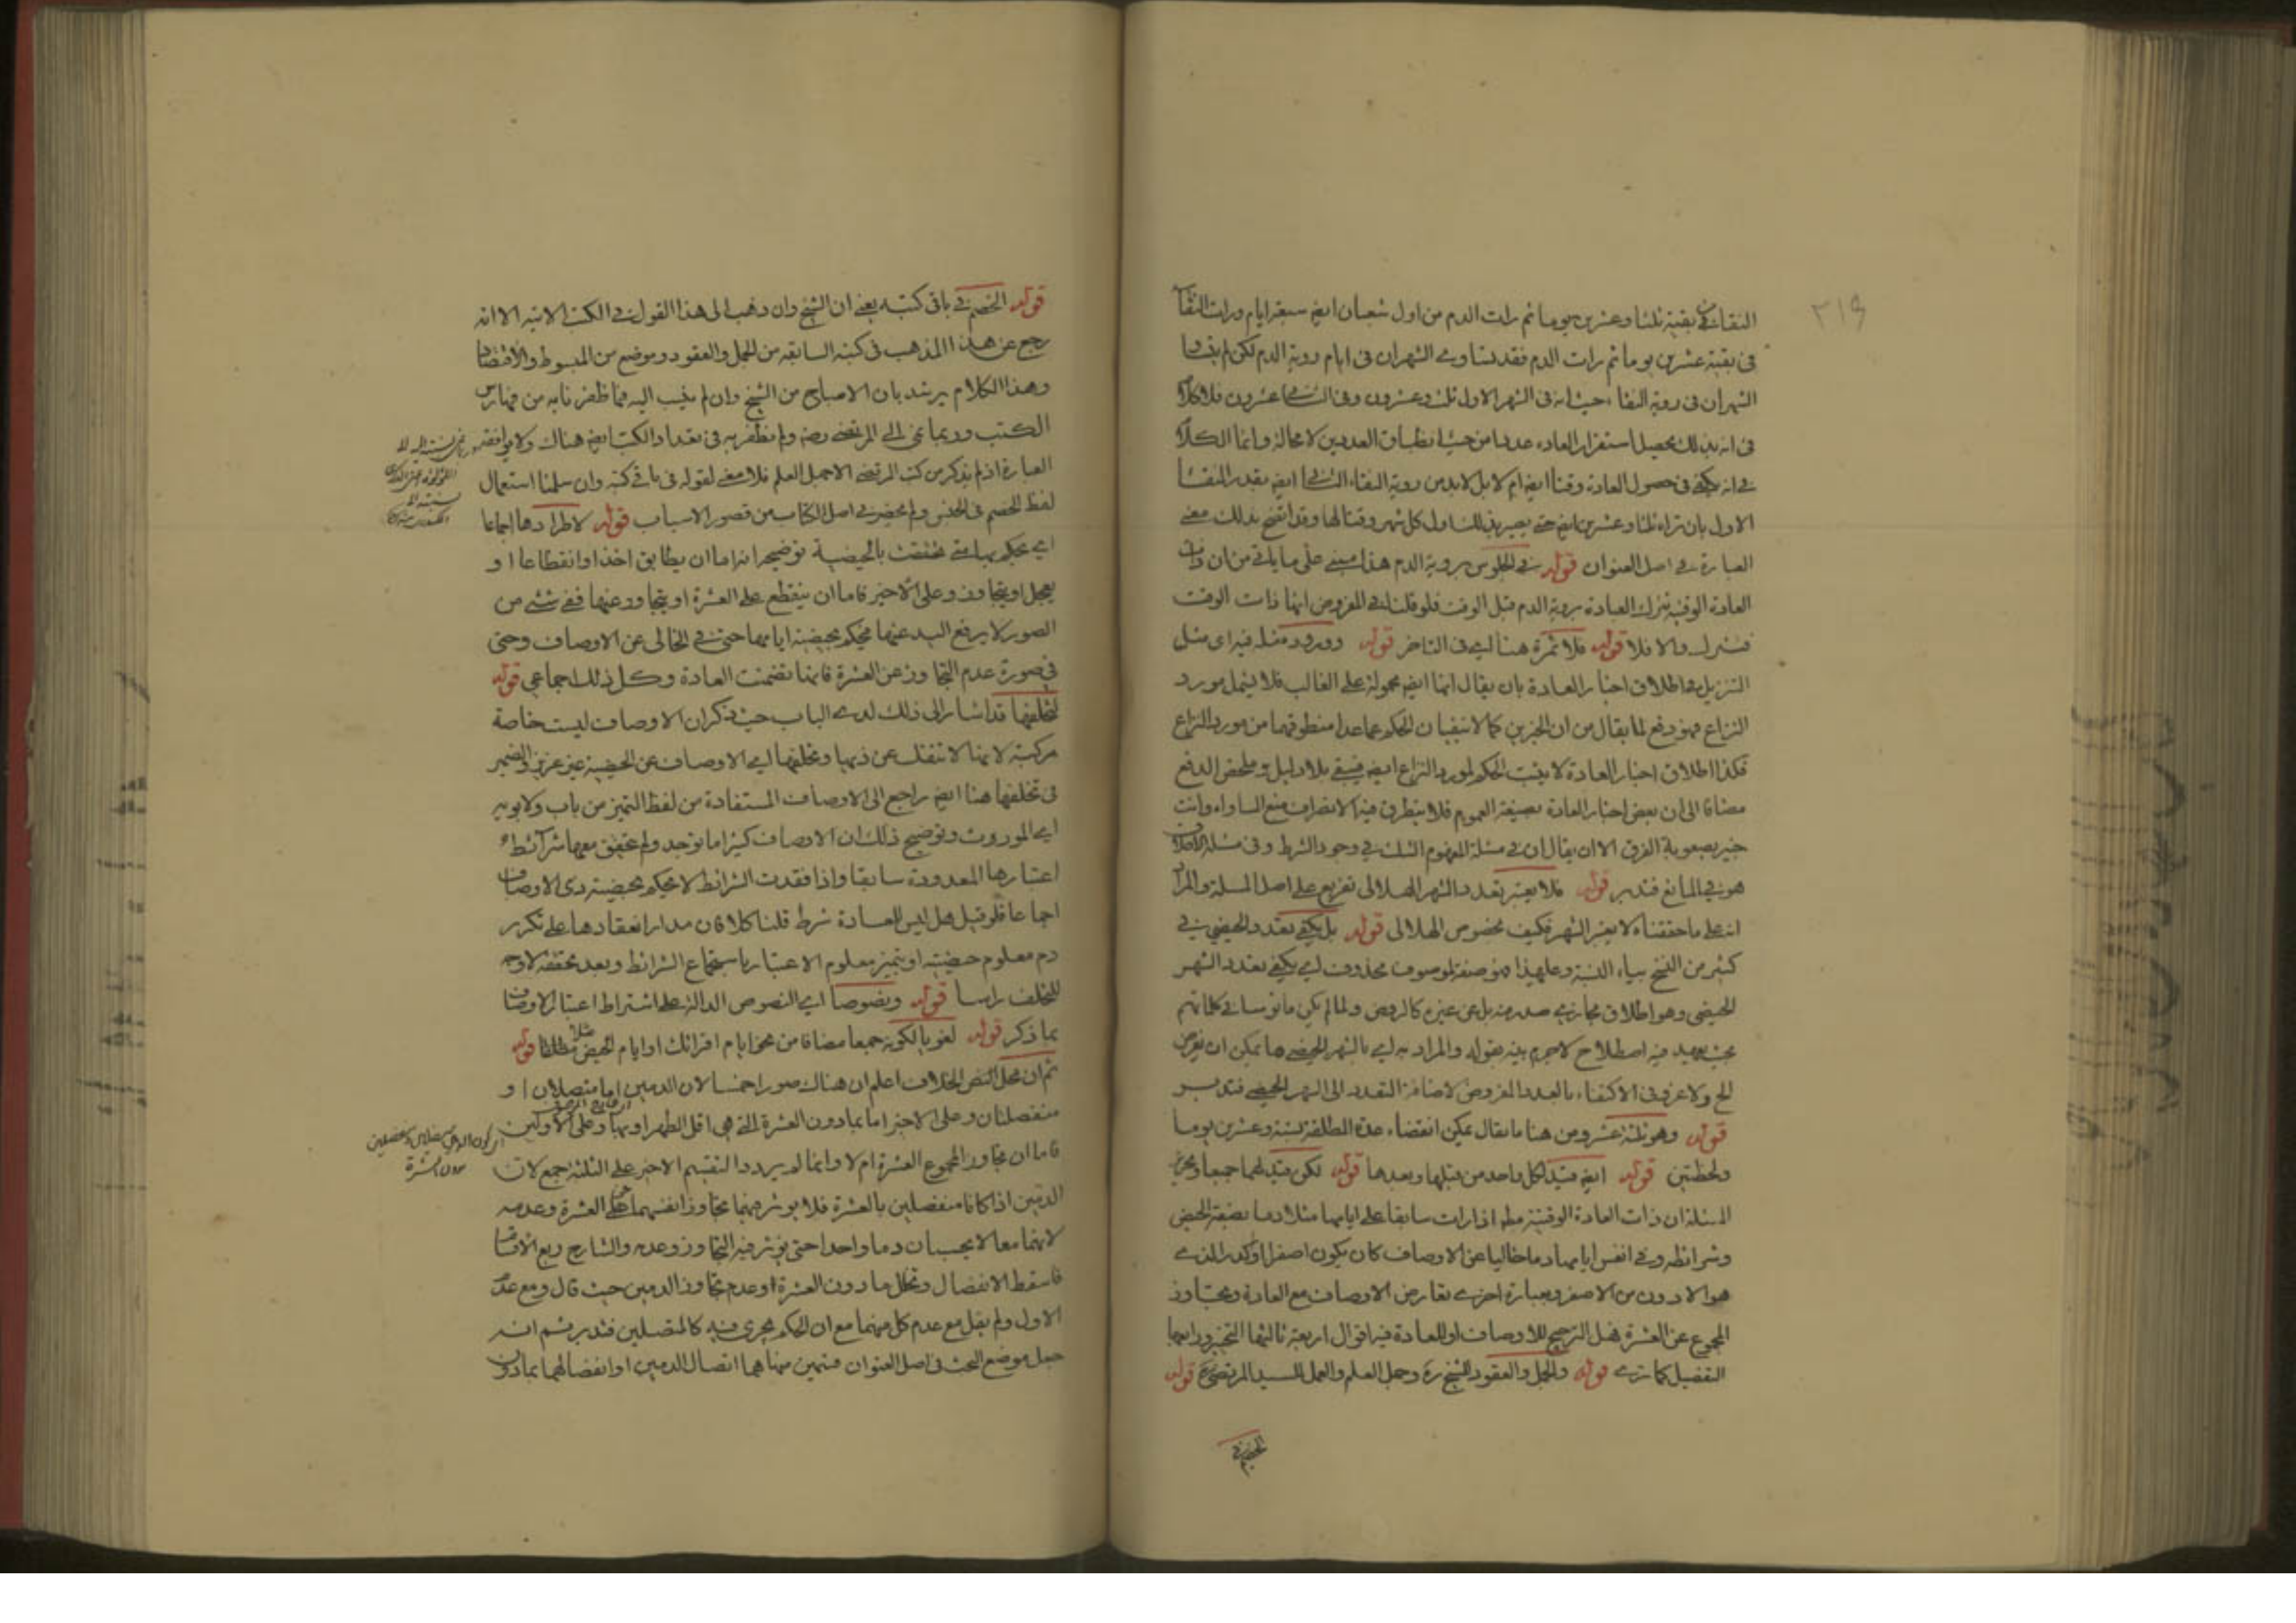 ٣١٩
في بقية ثلثا وعشرين يوما ثم رات الدم من اول شعبان ايض سبعة ايام ورات النقاء
في بقية عشرين يوما ثم رات الدم فقد تساوى الشهران في ايام روية الدم لكن لم
الشهران في روية النقاء حيث انه في الشهر الاول ثلث وعشرون وفي الثاني عشرون فلا كلام
في انه بذلك يحصل استقرار العادة عددا من حيث انطباق العددين لا محالة وانما الكلام
في انه يكفي في حصول العادة وقتا ايض ام لا بل لا بد من روية النقاء الثاني ايض بقدر النقاء
الاول بان تراه ثلثا وعشرين ايض حتى يصير بذلك اول كل شهر وقتا لها وقد اتضح بذلك معنى
العبارة في اصل العنوان قوله في الجلوس بروية الدم هذا مبني على ما ياتي من ان ذات
العادة الوقتية تترك العبادة بروية الدم قبل الوقت فلو قلنا في المفروض انها ذات الوقت
فتترك والا فلا قوله فلا ثمرة هنا اي في التاخر قوله وورود مثله فيه اي مثل
التنزيل في اطلاق اخبار العادة بان يقال انها ايض محمولة على الغالب فلا يشمل مورد
النزاع فهو دفع لما يقال من ان الخبرين كما لا ينفيان الحكم عما عدا منطوقهما من مورد النزاع
فكذا اطلاق اخبار العادة لا يثبت الحكم لمورد النزاع ايض فيبقى بلا دليل وملخص الدفع
مضافا الى ان بعض اخبار العادة بصيغة العموم فلا يتطرق فيه الانصراف منع المساواة وانت
خبير بصعوبة الفرق الا ان يقال ان في مسئلة المفهوم الشك في وجود الشرط وفي مسئلة الاطلاق
هو في المانع فتدبر قوله فلا يعتبر تعدد الشهر الهلالي تفريع على اصل المسئلة والمراد
انه على ما حققناه لا يعتبر الشهر فكيف بخصوص الهلالي قوله بل يكفي تعدد الحيضي في
كثير من النسخ بياء النسبة وعليهذا فهو صفة لموصوف محذوف اي يكفي تعدد الشهر
الحيضي وهو اطلاق مجازي صدر منه بل عن غيره كالروض ولما لم يكن مانوسا في كلماتهم
بحيث يعهد فيه اصطلاح لاجرم بينه بقوله والمراد به اي بالشهر الحيضي ما يمكن ان يفرض
الخ ولا غرو في الاكتفاء بالعدد المفروض لاضافة التعدد الى الشهر الحيضي فتدبر
قوله وهو ثلثة عشر ومن هنا ما يقال يمكن انقضاء عدة المطلقة بستة وعشرين يوما
ولحظتين قوله ايض قيد لكل واحد من قبلها وبعدها قوله لكن قيد لهما جميعا
المسئلة ان ذات العادة الوقتية مط اذا رات سابقا على ايامها مثلا دما بصفة الحيض
وشرائطه وفي انفس ايامها دما خاليا عن الاوصاف كان يكون اصفر او كدر الذي
هو الادون من الاصفر وبعبارة اخرى تعارض الاوصاف مع العادة وتجاوز
المجموع عن العشرة فهل الترجيح للاوصاف او للعادة فيه اقوال اربعة ثالثها التخيير ورابعها
التفصيل كما ترى قوله والجمل والعقود للشيخ ره وجمل العلم والعمل للسيد المرتضى ره قوله
الخضم في
قوله الخضم في باقي كتبه يعني ان الشيخ وان ذهب الى هذا القول في الكتب الاتية الا انه
رجع عن هذا المذهب في كتبه السابقة من الجمل والعقود وموضع من المبسوط والاقتصاد
وهذا الكلام يرشد بان الاصباح من الشيخ وان لم ينسب اليه فما ظفرنا به من فهارس
الكتب وربما نمى الى المرتضى رضه ولم نظفر به في تعداد الكتب ايض هناك ولا يوافقه
العبارة اذ لم يذكر من كتب المرتضى الا جمل العلم فلا معنى لقوله في باقي كتبه وان سلمنا استعمال
لفظ الخضم في الجنس ولم يحضرني اصل الكتاب من قصور الاسباب قوله لاطرادها اجماعا
اي يحكم بها متى تحققت بالحيضية توضيحه انه اما ان يطابق اخذا وانقطاعا او
يعجل او يتجاوز وعلى الاخير فاما ان ينقطع على العشرة او يتجاوز عنها ففي شئ من
الصور لا يرفع اليد عنها فيحكم بحيضية ايامها حتى في الخالي عن الاوصاف وحتى
في صورة عدم التجاوز عن العشرة فانها تضمنت العادة وكل ذلك اجماعي قوله
لتخلفها قد اشار الى ذلك لدى الباب حيث ذكر ان الاوصاف ليست خاصة
مركبة لانها لا تنفك عن ذيها وتخلفها اي الاوصاف عن الحيضية غير عزيز والضمير
في تخلفها هنا ايض راجع الى الاوصاف المستفادة من لفظ التميز من باب ولابويه
اي الموروث وتوضيح ذلك ان الاوصاف كثيرا ما توجد ولم يتحقق معها شرائط
اعتبارها المعدودة سابقا واذا فقدت الشرائط لا يحكم بحيضية ذي الاوصاف
اجماعا فلو قيل هل ليس للعادة شرط قلنا كلا فان مدار انعقادها على تكرر
دم معلوم حيضيته او بتميز معلوم الاعتبار باستجماع الشرائط وبعد تحققه لا وجه
للتخلف راسا قوله ونصوصا اي النصوص الدالة على اشتراط اعتبار الاوصاف
بما ذكر قوله لغويا لكونه جمعا مضافا من نحو ايام اقرائك او ايام الحيض مثلا مطلقا قوله
ثم ان محل النص الخلاف اعلم ان هناك صورا خمسا لان الدمين اما متصلان او
منفصلان وعلى الاخير اما بما دون العشرة التي هي اقل الطهر او بها وعلى الاولين
فاما ان يتجاوز المجموع العشرة ام لا وانما لم يردد التقسيم الاخير على الثلثة جمع لان
الدمين اذا كانا منفصلين بالعشرة فلا يوثر فيهما تجاوز انفسهما عن العشرة وعدمه
لانهما معا لا يحسبان دما واحدا حتى يوثر فيه التجاوز وعدمه والشارح ربع الاقسام
فاسقط الانفصال وتخلل ما دون العشرة او عدم تجاوز الدمين حيث قال ومع عدم
الاول ولم يقل مع عدم كل منهما مع ان الحكم يجري فيه كالمتصلين فتدبر ثم انه
جعل موضع البحث في اصل العنوان قسمين منها هما اتصال الدمين او انفصالهما بما دون